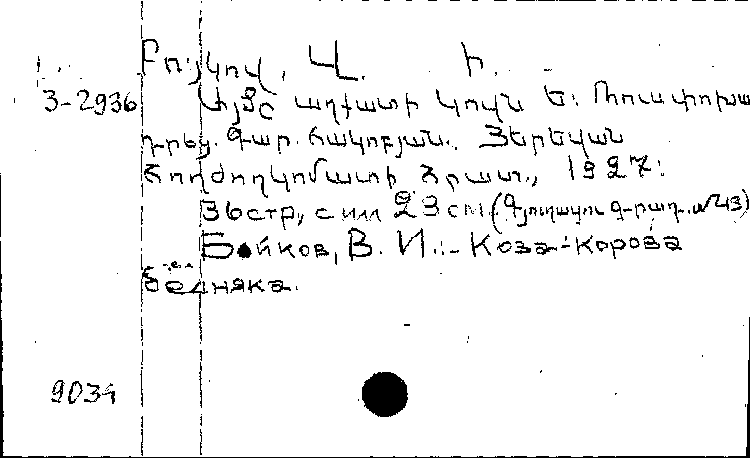 Բույկով, Վ. Ի.
3-2936 Այծը աղքատի կովն է: Փոխադրեց. Գար. Հակոբյան. Յերեվան
Հողժողկոմատի Հրատ., 1927:
36стр, с илл 23 см. (Գյուղական գրադ. №43)
Бойков, В. И.:- Коза-корова
бедняка.
9034